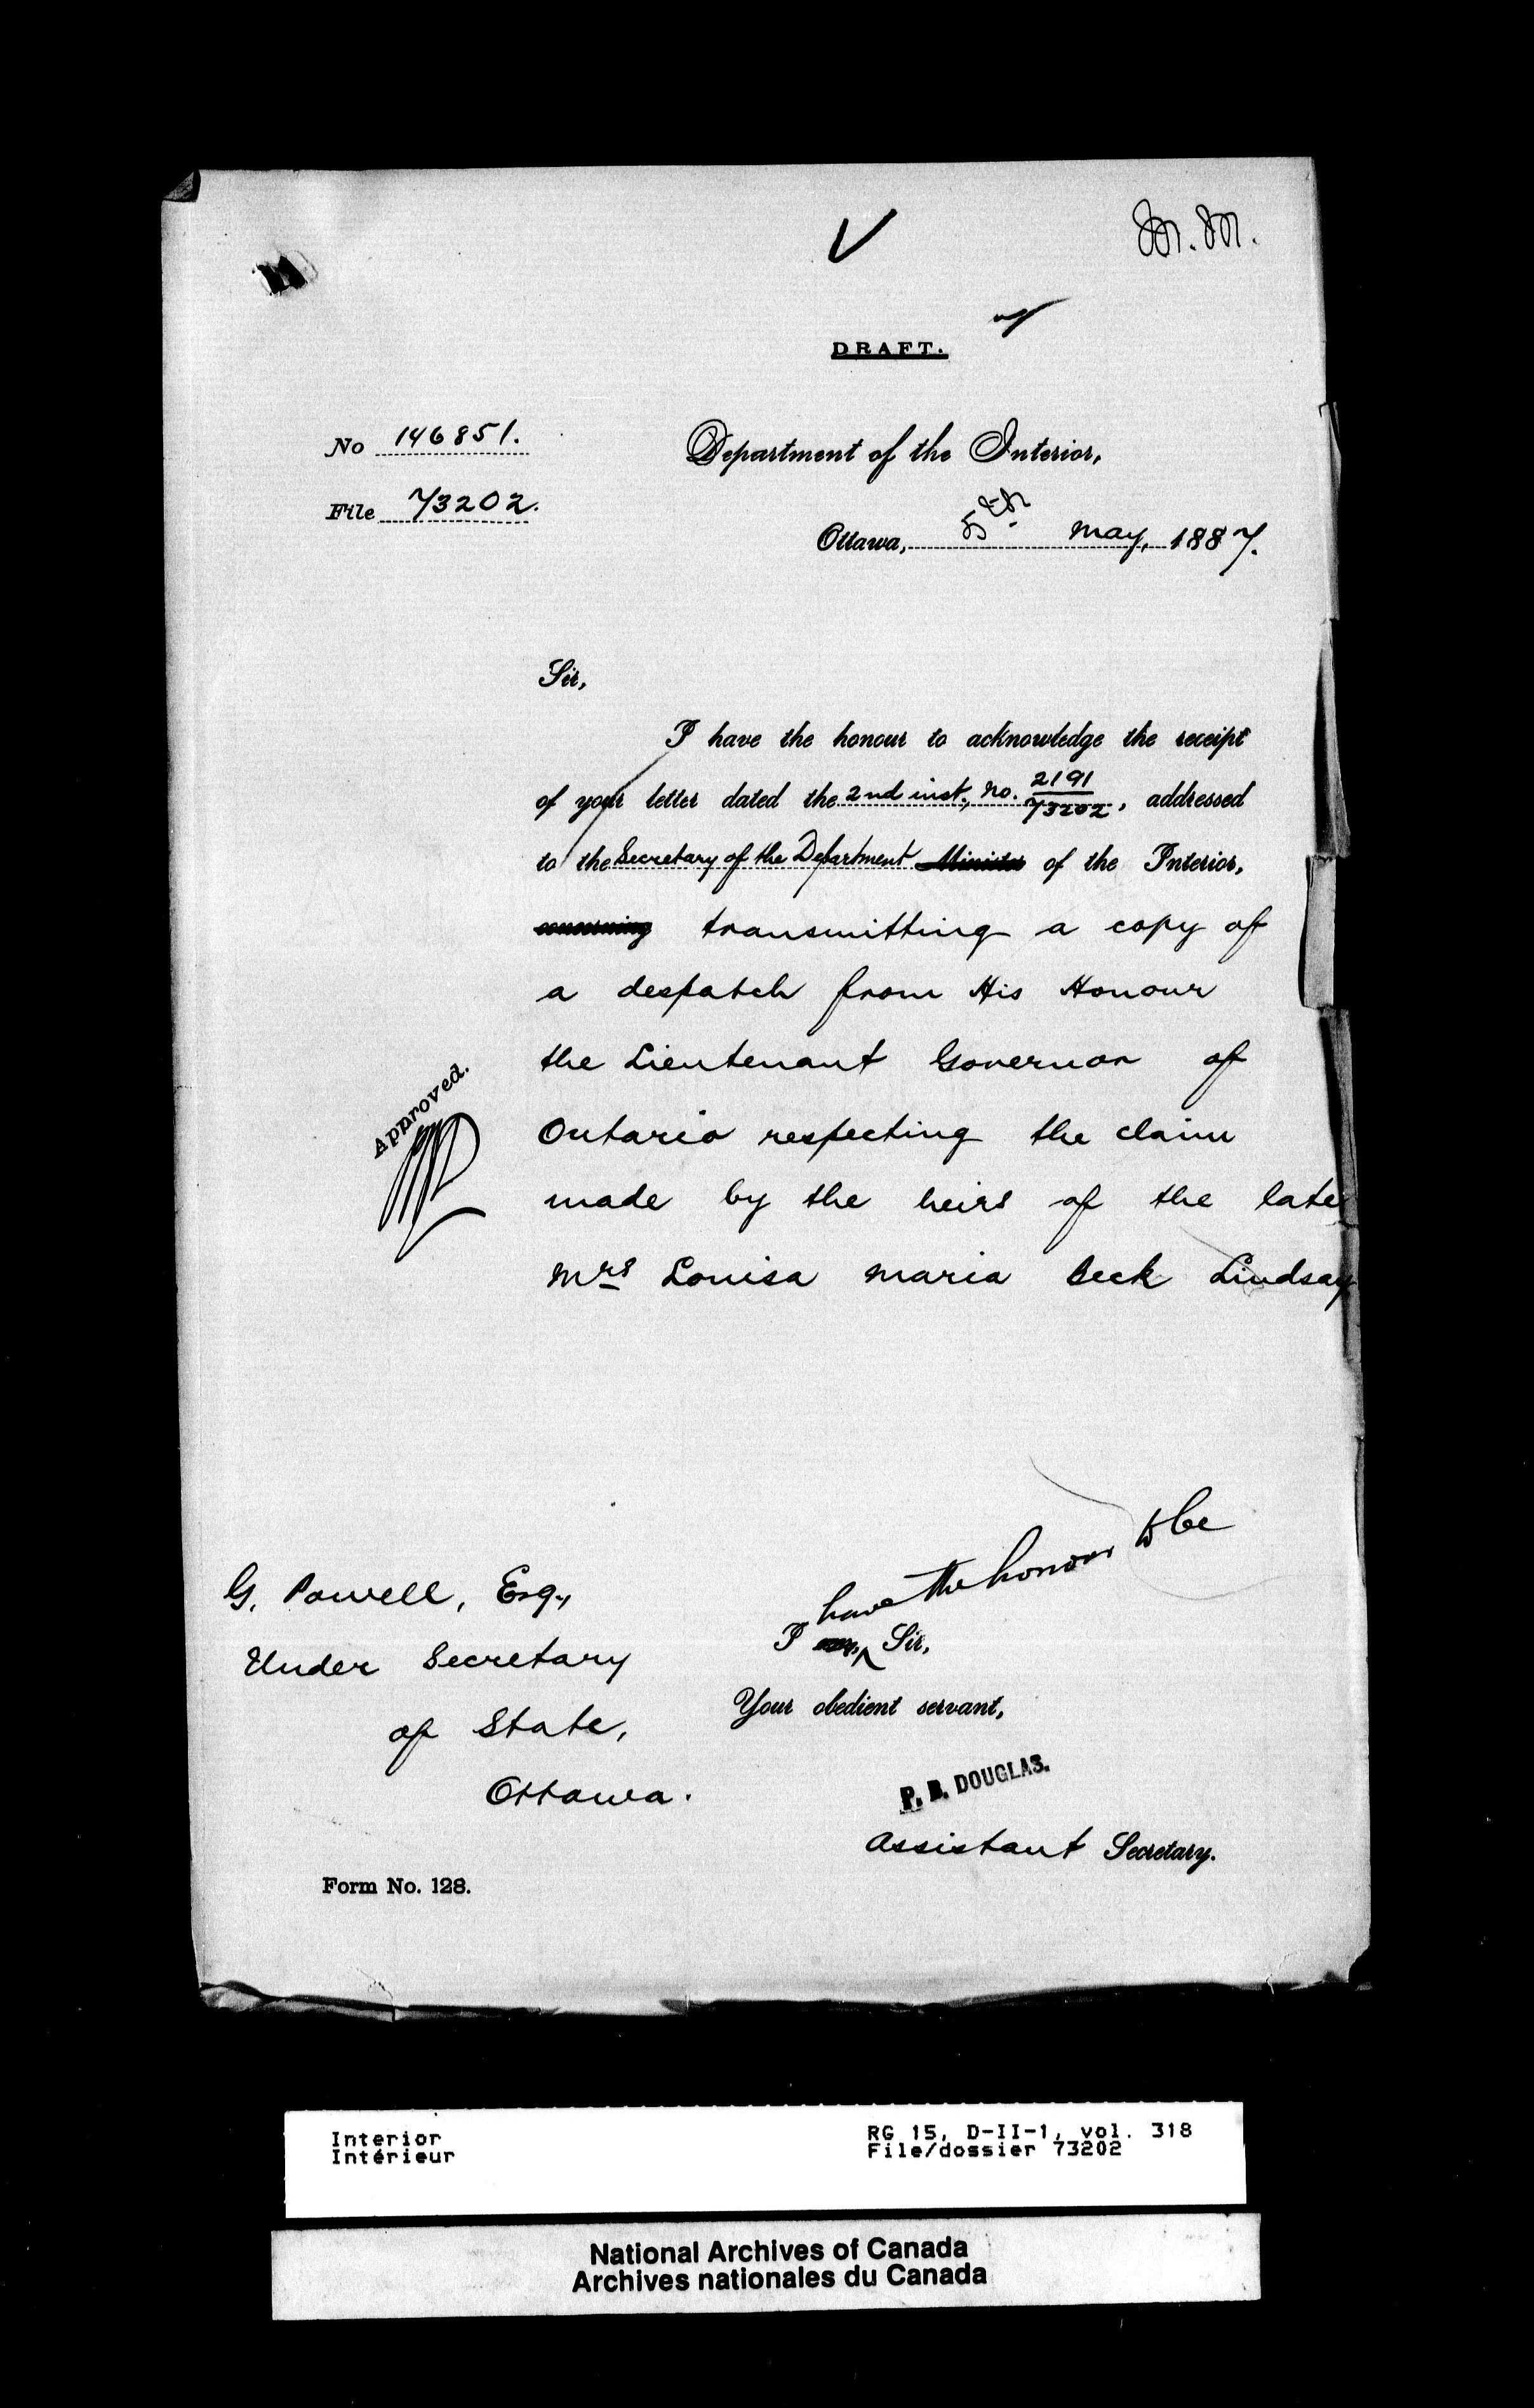 M. M.
DRAFT.
No 146851.
Department of the Interior,
File 73202.
Ottawa, 5th May, 1887.
Sir,
I have the honour to acknowledge the receipt
of your letter dated the 2nd inst., No. 2191/73202, addressed
to the Secretary of the Department Minister of the Interior,
concerning transmitting a copy of
a despatch from His Honour
the Lieutenant Governor of
Ontario respecting the claim
made by the heirs of the late
Mrs Louisa Maria Beck Lindsay
Approved.
G. Powell, Esq.,
Under Secretary
of State,
Ottawa.
have the honour to be
I am, Sir,
Your obedient servant,
P. B. DOUGLAS.
Assistant Secretary.
Form No. 128.
Interior
Intérieur
RG 15, D-II-1, vol. 318
File/dossier 73202
National Archives of Canada
Archives nationales du Canada